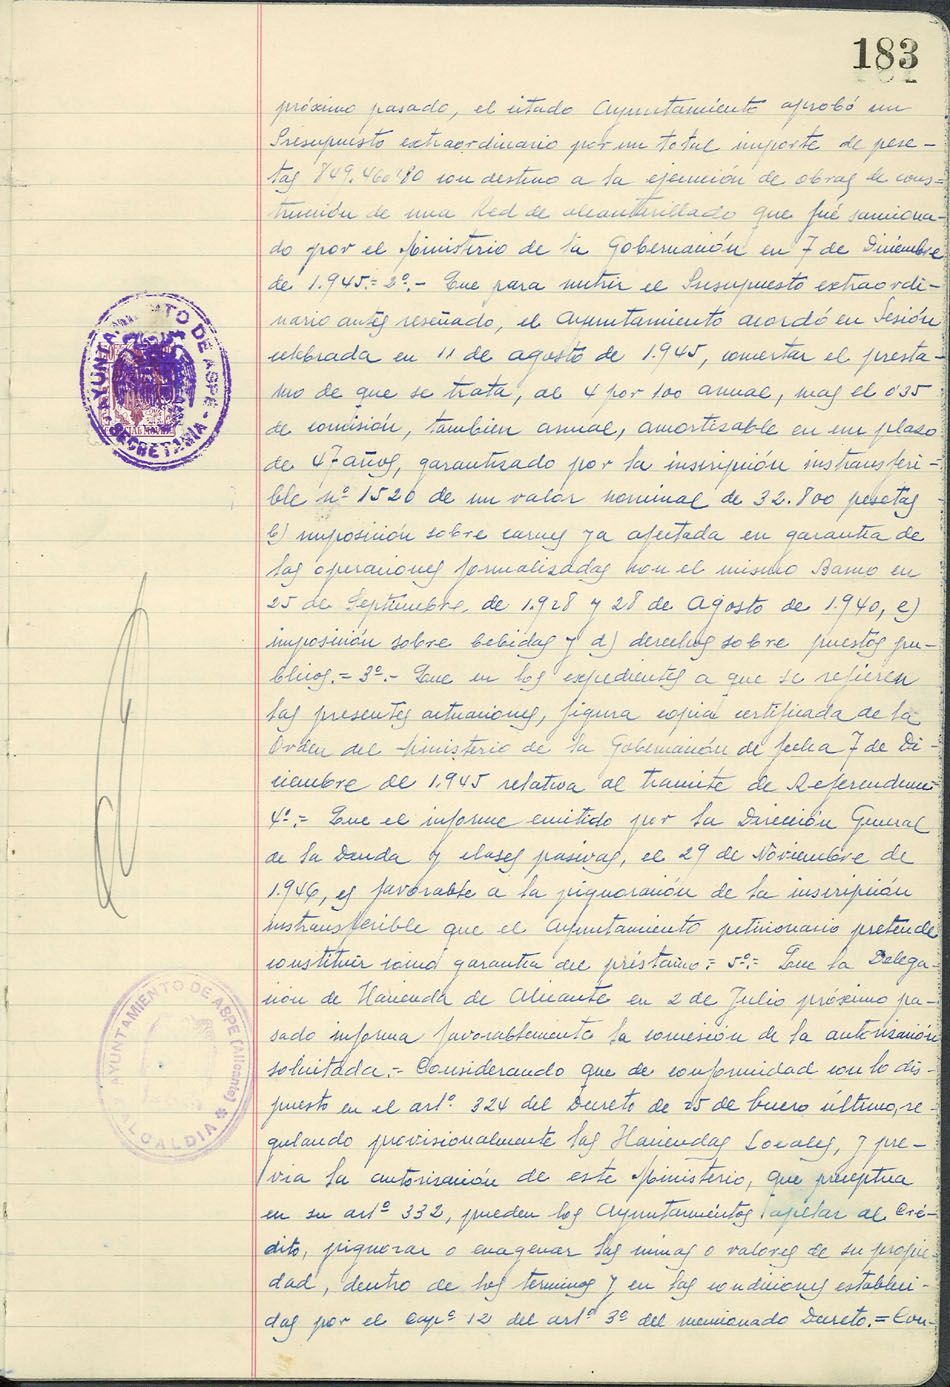 183
próximo pasado, el citado Ayuntamiento aprobó un
Presupuesto extraordinario por un total importe de pese-
tas 849.460'80 con destino a la ejecución de obras de cons-
trucción de una Red de alcantarillado que fué sanciona-
do por el Ministerio de la Gobernación en 7 de Diciembre
de 1.945.= 2º.- Que para nutrir el Presupuesto extraordi-
nario antes reseñado, el Ayuntamiento acordó en Sesión
celebrada en 11 de agosto de 1.945, concertar el presta-
mo de que se trata, al 4 por 100 anual, mas el 0'35
de comisión, tambien anual, amortizable en un plazo
de 47 años, garantizado por la inscripción instransferi-
ble nº 1520 de un valor nominal de 32.800 pesetas
b) imposición sobre carnes ya afectada en garantia de
las operaciones formalizadas con el mismo Banco en
25 de Septiembre de 1.928 y 28 de Agosto de 1.940, c)
imposición sobre bebidas y d) derechos sobre puestos pu-
blicos.= 3º.- Que en los expedientes a que se refieren
las presentes actuaciones, figura copia certificada de la
Orden del Ministerio de la Gobernación de fecha 7 de Di-
ciembre de 1.945 relativa al tramite de Referendum=
4º.= Que el informe emitido por la Dirección General
de la Deuda y clases pasivas, el 29 de Noviembre de
1.946, es favorable a la pignoración de la inscripción
instransferible que el Ayuntamiento peticionario pretende
constituir como garantia del préstamo.= 5º.= Que la Delega-
ción de Hacienda de Alicante en 2 de Julio próximo pa-
sado informa favorablemente la concesión de la autorización
solicitada.- Considerando que de conformidad con lo dis-
puesto en el artº. 324 del Decreto de 25 de Enero último, re-
gulando provisionalmente las Haciendas Locales, y pre-
via la autorización de este Ministerio, que preceptua
en su artº 332, pueden los Ayuntamientos apelar al Cré-
dito, pignorar o enagenar las minas o valores de su propie-
dad, dentro de los terminos y en las condiciones estableci-
das por el Capº 12 del artº 3º del mencionado Decreto.= Con-
AYUNTAMIENTO DE ASPE
SECRETARIA
AYUNTAMIENTO DE ASPE (Alicante)
ALCALDIA